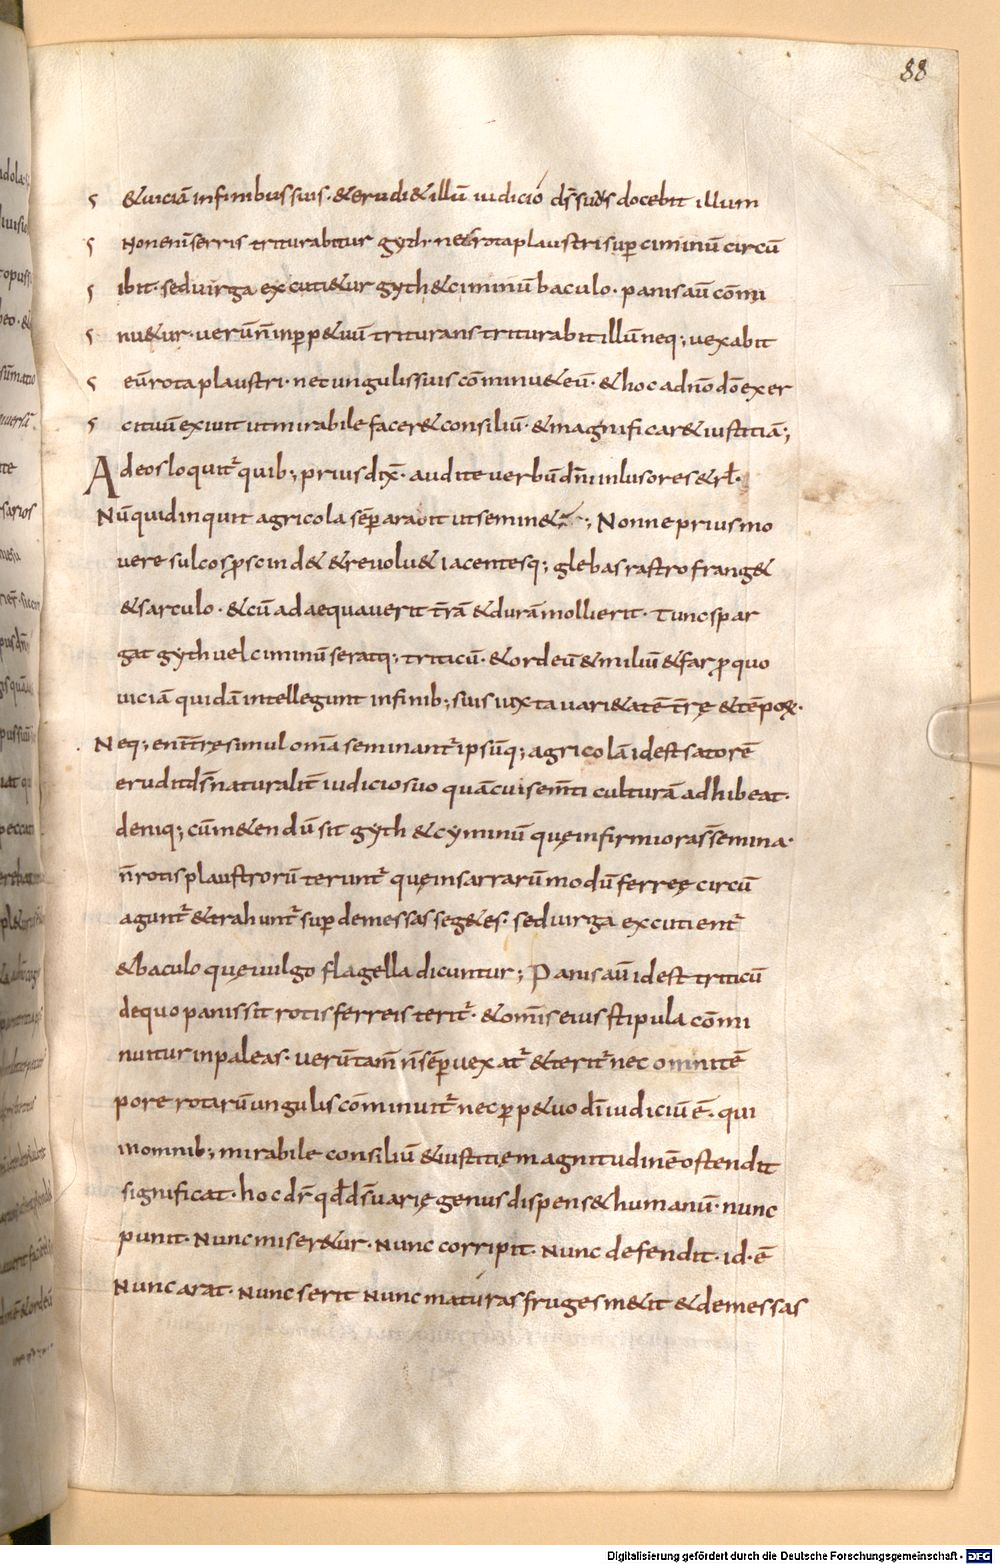 88
&uiciā infinibus suis · &erudi&illū iudicio d̄s suus docebit illum
Non eni serris triturabitur gyth · nec rota plaustri sup ciminū circū
ibit · sed uirga excuti&ur gyth & ciminū baculo · panis aū cōmi
nu&ur · uerū n̄ inpp&uū triturans triturabit illū neq; uexabit
eū rota plaustri · nec ungulis suis cōminu&eū · & hoc adn̄o dō exer
cituū exiuit ut mirabile facer& consiliū · & magnificar& iustitiā;
Ad eos loquit̄ quib; prius dix̄ · audite uerbū dn̄i inlusores & rł ·
Nūquid inquit agricola sēp arabit ut semin&; Nonne prius mo
uere sulcos pscind& & reuolu& iacentesq; glebas rastro frang&
& sarculo · & cū adaequauerit t̄rā & durā mollierit · tunc spar
gat gyth uel ciminū seratq; triticū · & ordeū & miliū & far p quo
uiciā quidā intellegunt infinib; suis iuxta uari&atē t̄rę & tēpoꝝ ·
Neq; eni t̄re simul om̄a seminant̄ ipsūq; agricolā id est satorē
erudit d̄s naturalit̄ iudicio suo quā cui sem̄ti culturā adhibeat ·
deniq; cū m&endū sit gyth & cyminū quę infirmiora s̄ semina ·
n̄ rotis plaustrorū terunt̄ quę in sarrarū modū ferreę circū
agunt̄ & trahunt̄ sup demessas seg&es · sed uirga excutient̄
& baculo quę uulgo flagella dicuntur; Panis aū id est triticū
de quo panis sit rotis ferreis terit̄ · & om̄is eius stipula cōmi
nuitur in paleas · uerūtam̄ n̄ sēp uexat̄ & terit̄ nec omni tē
pore rotarū ungulis cōminuit̄ nec pp&uo dī iudiciū ē · qui
in omnib; mirabile consiliū & iustitię magnitudinē ostendit
significat · hoc dr̄ qđ d̄s uarię genus dispens& humanū · nunc
punit · Nunc miser&ur · Nunc corripit · Nunc defendit · id · ē
Nunc arat · Nunc serit Nunc maturas fruges m&it & demessas
Digitalisierung gefördert durch die Deutsche Forschungsgemeinschaft - DFG